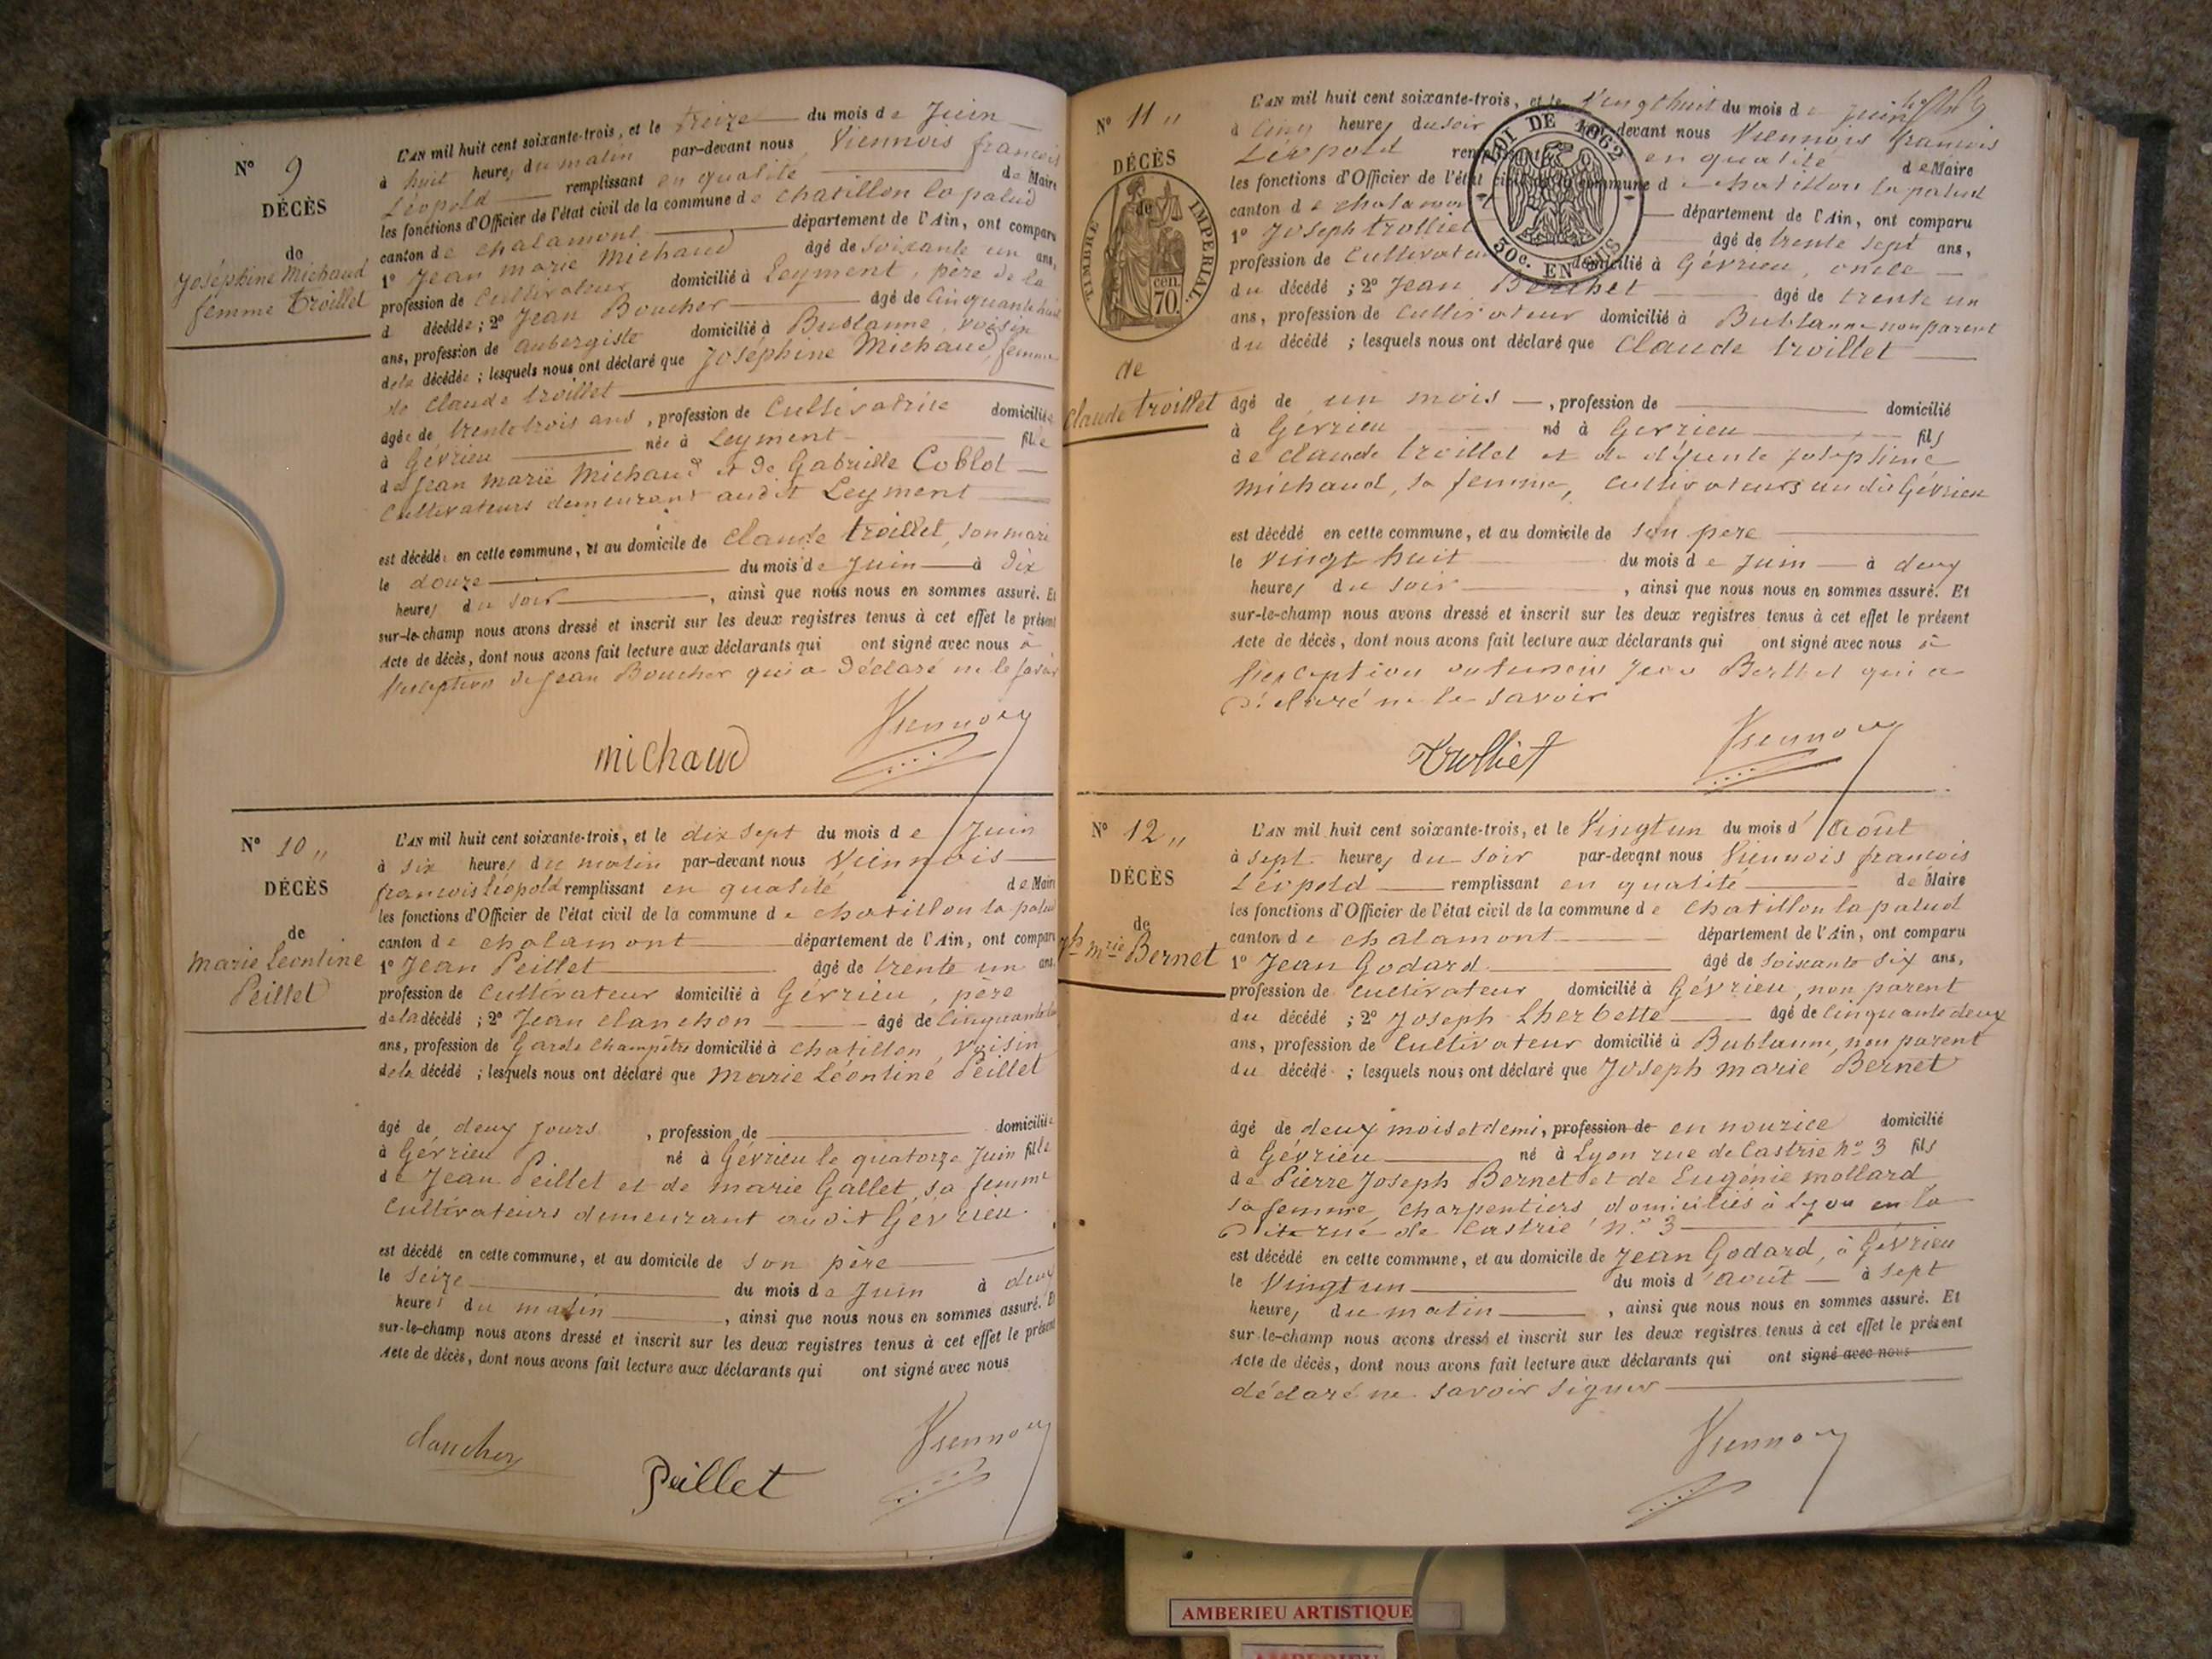 N° 9
DÉCÈS
de
Joséphine Michaud
femme Troillet
L'AN mil huit cent soixante-trois, et le treize du mois de Juin
à huit heures du matin par-devant nous Viennois francois
Léopold remplissant en qualité de Maire
les fonctions d'Officier de l'état civil de la commune de chatillon la palud
canton de chalamont département de l'Ain, ont comparu
1° Jean marie Michaud âgé de soixante un ans,
profession de Cultivateur domicilié à Leyment, père de la
d décédée ; 2° Jean Boucher âgé de Cinquante huit
ans, profession de aubergiste domicilié à Bublanne, voisin
de la décédée ; lesquels nous ont déclaré que Joséphine Michaud, femme
de Claude troillet
âgée de trente trois ans, profession de Cultivatrice domiciliée
à Gévrieu née à Leyment fille
de Jean marie Michaud et de Gabrielle Coblot
Cultivateurs demeurant audit Leyment
est décédé en cette commune, et au domicile de Claude troillet, son mari
le douze du mois de Juin à dix
heures du soir, ainsi que nous nous en sommes assuré. Et
sur-le-champ nous avons dressé et inscrit sur les deux registres tenus à cet effet le présent
Acte de décès, dont nous avons fait lecture aux déclarants qui ont signé avec nous à
l'exception de Jean Boucher qui a déclaré ne le savoir
michaud Viennois
N° 10 "
DÉCÈS
de
Marie Leontine
Peillet
L'AN mil huit cent soixante-trois, et le dix sept du mois de Juin
à six heures du matin par-devant nous Viennois
francois Léopold remplissant en qualité de Maire
les fonctions d'Officier de l'état civil de la commune de chatillon la palud
canton de chalamont département de l'Ain, ont comparu
1° Jean Peillet âgé de trente un ans,
profession de Cultivateur domicilié à Gévrieu, père
de la décédé ; 2° Jean clanchon âgé de Cinquante
ans, profession de Garde Champêtre domicilié à chatillon, voisin
de la décédé ; lesquels nous ont déclaré que Marie Léontine Peillet
âgé de deux jours, profession de domiciliée
à Gévrieu né à Gévrieu le quatorze Juin fille
de Jean Peillet et de marie Gallet, sa femme
Cultivateurs demeurant audit Gévrieu.
est décédé en cette commune, et au domicile de son père
le seize du mois de Juin à deux
heures du matin, ainsi que nous nous en sommes assuré. Et
sur-le-champ nous avons dressé et inscrit sur les deux registres tenus à cet effet le présent
Acte de décès, dont nous avons fait lecture aux déclarants qui ont signé avec nous
clanchon Peillet Viennois
N° 11 "
DÉCÈS
de
TIMBRE IMPÉRIAL.
cen. 70.
de
Claude troillet
LOI DE 1862
50c. EN SUS
L'AN mil huit cent soixante-trois, et le Vingt huit du mois de juin
à cinq heures du soir par-devant nous Viennois francois
Léopold remplissant en qualité de Maire
les fonctions d'Officier de l'état civil de la commune de chatillon la palud
canton de chalamont département de l'Ain, ont comparu
1° Joseph trolliet âgé de trente sept ans,
profession de Cultivateur domicilié à Gévrieu, oncle
du décédé ; 2° Jean Berthet âgé de trente un
ans, profession de Cultivateur domicilié à Bublanne non parent
du décédé ; lesquels nous ont déclaré que Claude troillet
âgé de un mois, profession de domicilié
à Gévrieu né à Gevrieu fils
de Claude troillet et de défunte Joséphine
Michaud, sa femme, Cultivateurs audit Gévrieu
est décédé en cette commune, et au domicile de son père
le vingt huit du mois de Juin à deux
heures du soir, ainsi que nous nous en sommes assuré. Et
sur-le-champ nous avons dressé et inscrit sur les deux registres tenus à cet effet le présent
Acte de décès, dont nous avons fait lecture aux déclarants qui ont signé avec nous à
l'exception Jean Berthet qui a
déclaré ne le savoir
Trolliet Viennois
N° 12 "
DÉCÈS
de
Jh Mrie Bernet
L'AN mil huit cent soixante-trois, et le Vingt un du mois d'Août
à sept heures du soir par-devant nous Viennois francois
Léopold remplissant en qualité de Maire
les fonctions d'Officier de l'état civil de la commune de Chatillon la palud
canton de chalamont département de l'Ain, ont comparu
1° Jean Godard âgé de soixante six ans,
profession de Cultivateur domicilié à Gévrieu, non parent
du décédé ; 2° Joseph Lherbette âgé de Cinquante deux
ans, profession de Cultivateur domicilié à Bublanne, non parent
du décédé ; lesquels nous ont déclaré que Joseph marie Bernet
âgé de deux mois et demi, profession de en nourice domicilié
à Gévrieu né à Lyon rue de Castrie N° 3 fils
de Pierre Joseph Bernet et de Eugénie mollard
sa femme, charpentiers domiciliés à Lyon en la
dite rue de Castrie N° 3
est décédé en cette commune, et au domicile de Jean Godard, à Gévrieu
le Vingt un du mois d'août à sept
heures du matin, ainsi que nous nous en sommes assuré. Et
sur-le-champ nous avons dressé et inscrit sur les deux registres tenus à cet effet le présent
Acte de décès, dont nous avons fait lecture aux déclarants qui ont signé avec nous
déclaré ne savoir signer
Viennois
AMBERIEU ARTISTIQUE
AMBERIEU